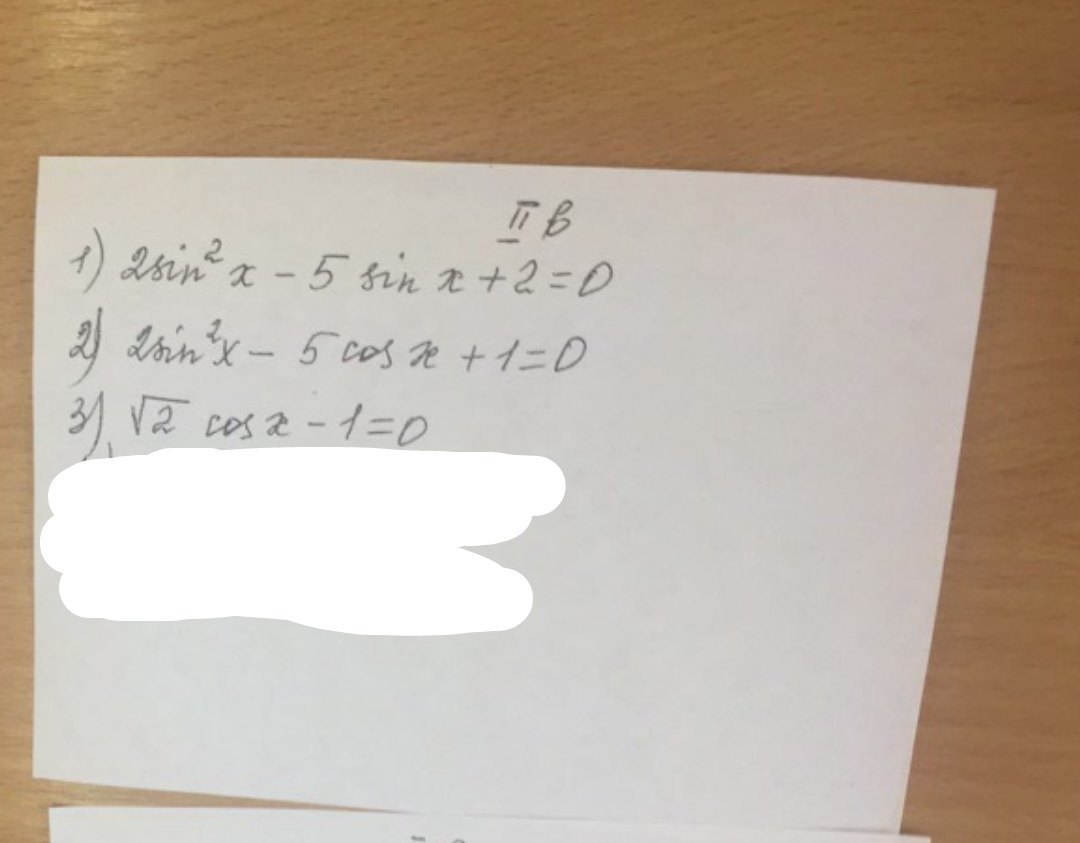 II В
1) 2sin² x - 5 sin x + 2 = 0
2) 2sin²x - 5 cos x + 1 = 0
3) √2 cos x - 1 = 0